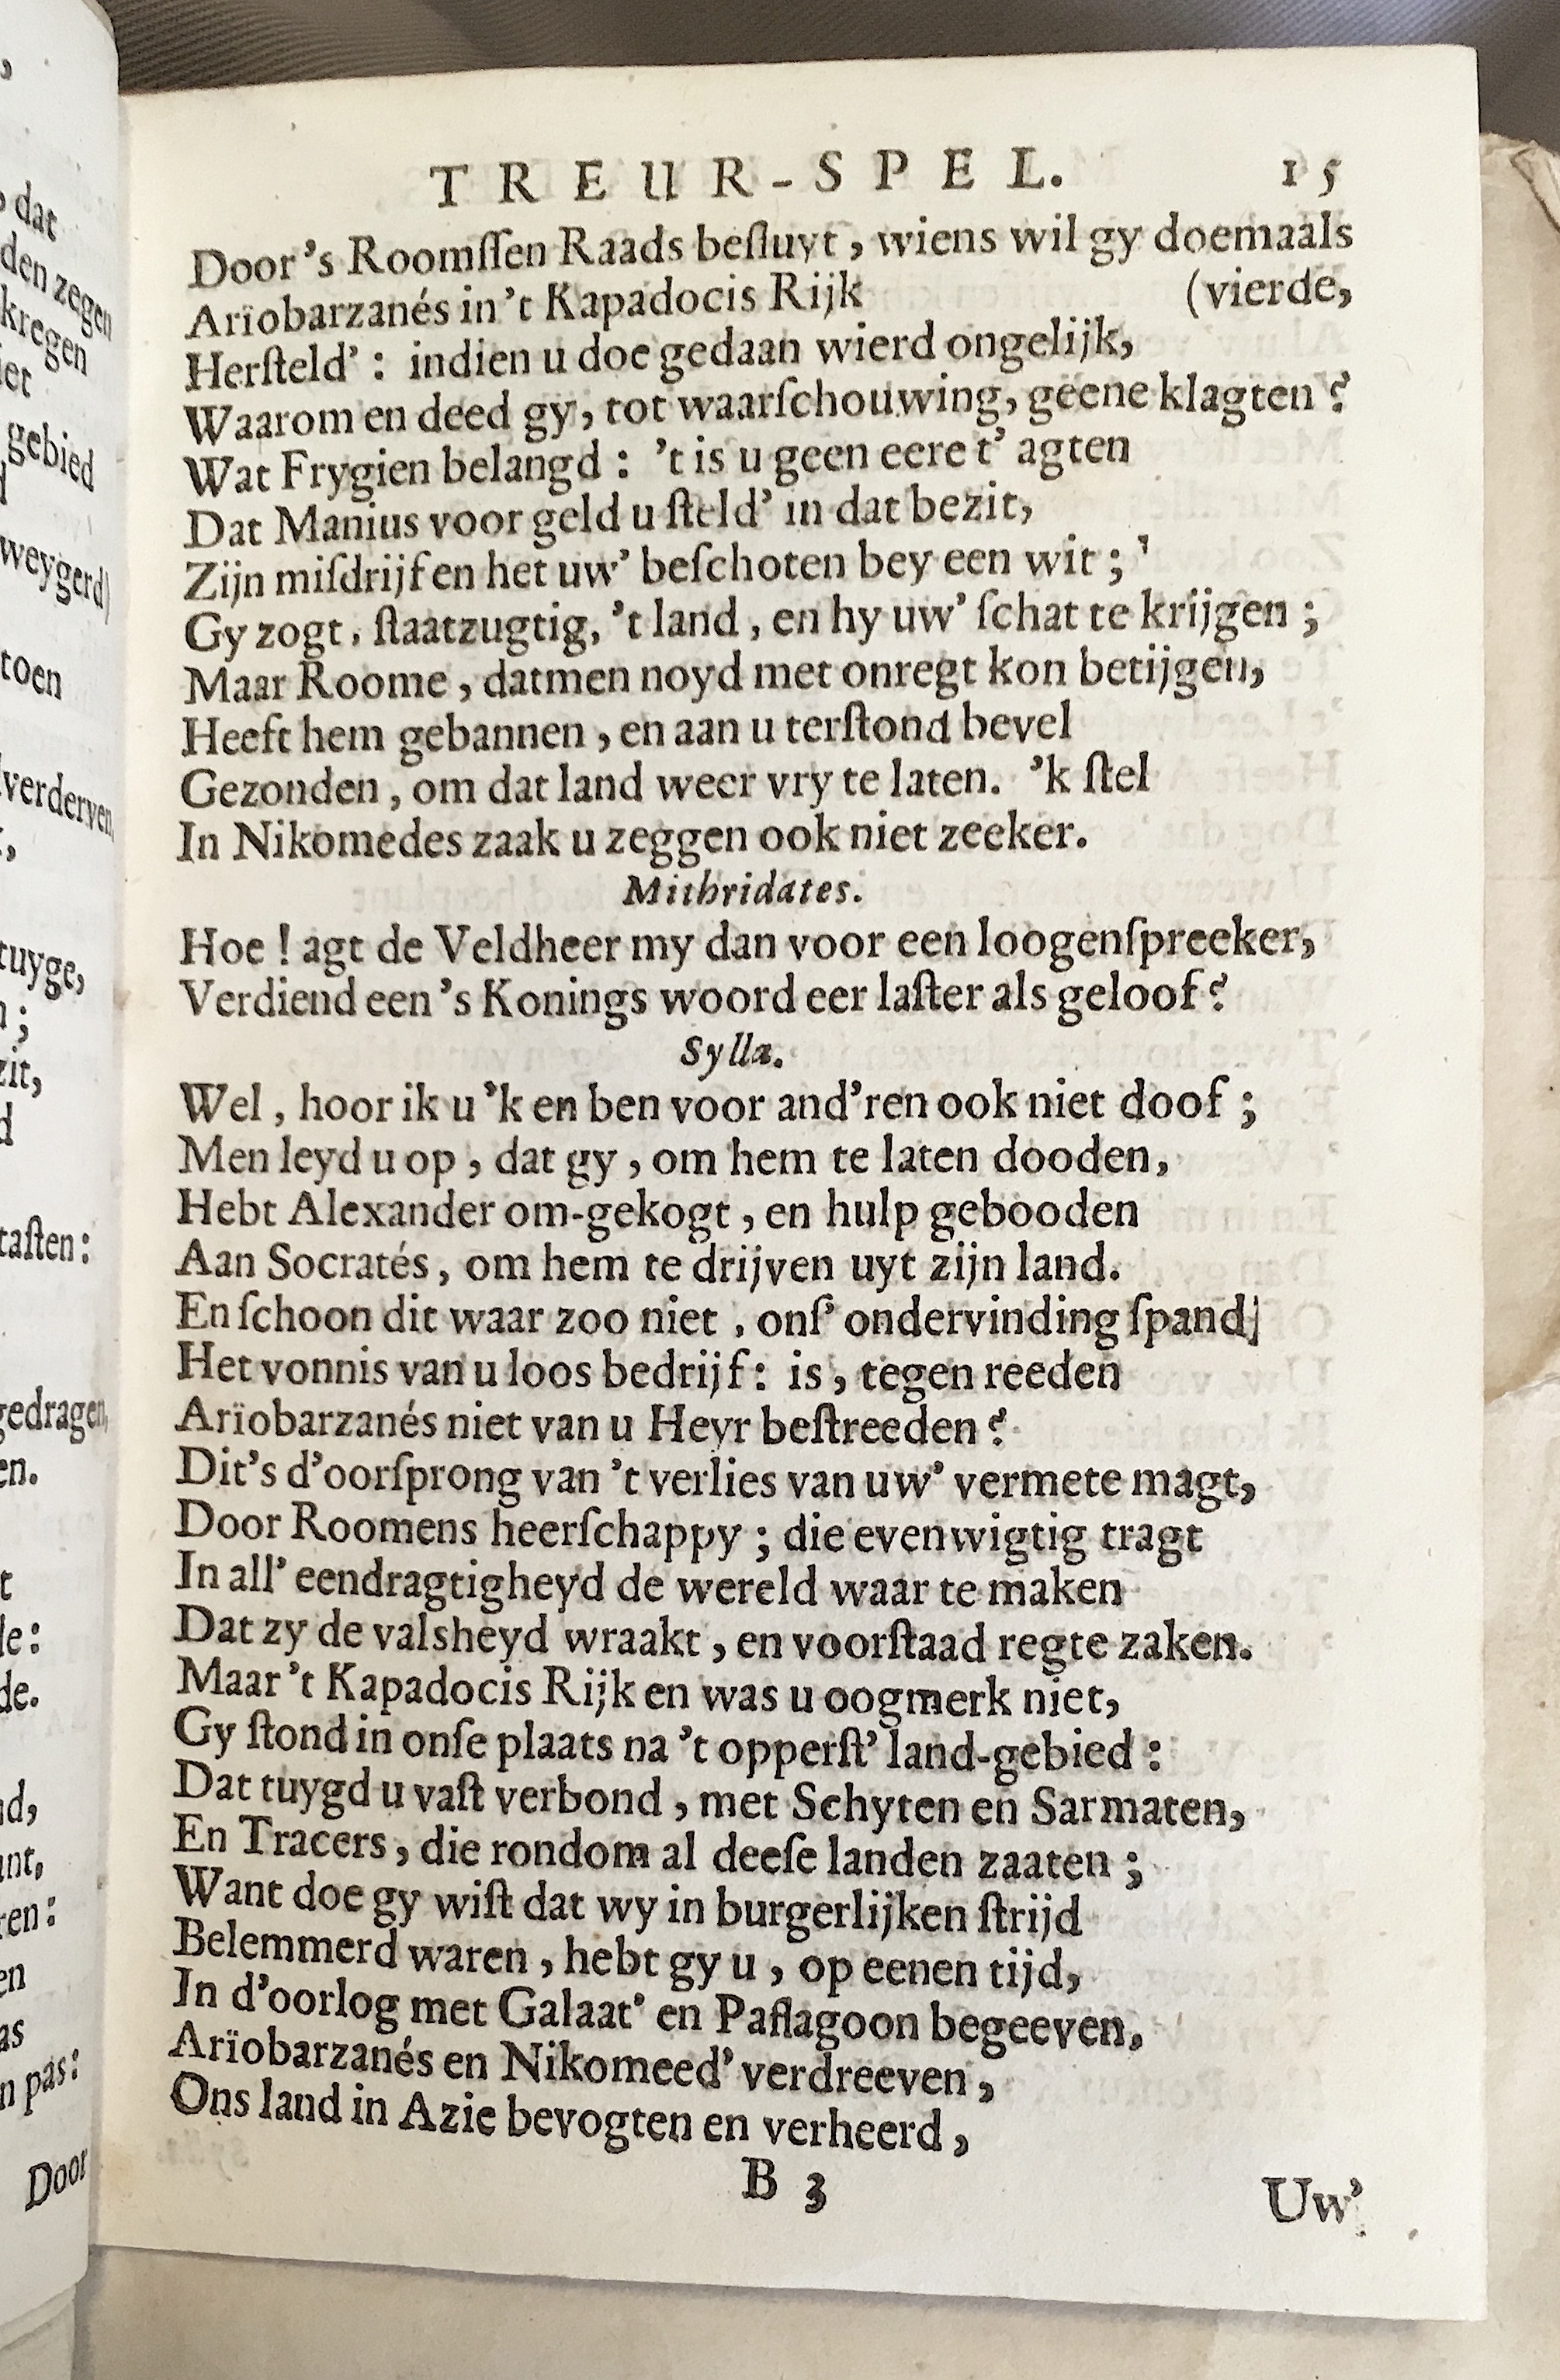 TREUR-SPEL. 15
Door's Roomſſen Raads beſluyt, wiens wil gy doemaals
Arïobarzanés in't Kapadocis Rijk (vierde,
Herſteld': indien u doe gedaan wierd ongelijk,
Waarom en deed gy, tot waarſchouwing, geene klagten?
Wat Frygien belangd: 't is u geen eere t' agten
Dat Manius voor geld u ſteld' in dat bezit,
Zijn miſdrijf en het uw' beſchoten bey een wit;'
Gy zogt, ſtaatzugtig, 't land, en hy uw' ſchat te krijgen;
Maar Roome, datmen noyd met onregt kon betijgen,
Heeft hem gebannen, en aan u terſtond bevel
Gezonden, om dat land weer vry te laten. 'k ſtel
In Nikomedes zaak u zeggen ook niet zeeker.
Mithridates.
Hoe! agt de Veldheer my dan voor een loogenſpreeker,
Verdiend een 's Konings woord eer laſter als geloof?
Sylla.
Wel, hoor ik u 'k en ben voor and'ren ook niet doof;
Men leyd u op, dat gy, om hem te laten dooden,
Hebt Alexander om-gekogt, en hulp gebooden
Aan Socratés, om hem te drijven uyt zijn land.
En ſchoon dit waar zoo niet, onſ' ondervinding ſpand
Het vonnis van u loos bedrijf: is, tegen reeden
Arïobarzanés niet van u Heyr beſtreeden?
Dit's d'oorſprong van 't verlies van uw' vermete magt,
Door Roomens heerſchappy; die evenwigtig tragt
In all' eendragtigheyd de wereld waar te maken
Dat zy de valsheyd wraakt, en voorſtaad regte zaken.
Maar 't Kapadocis Rijk en was u oogmerk niet,
Gy ſtond in onſe plaats na 't opperſt' land-gebied:
Dat tuygd u vaſt verbond, met Schyten en Sarmaten,
En Tracers, die rondom al deeſe landen zaaten;
Want doe gy wiſt dat wy in burgerlijken ſtrijd
Belemmerd waren, hebt gy u, op eenen tijd,
In d'oorlog met Galaat' en Paflagoon begeeven,
Arïobarzanés en Nikomeed' verdreeven,
Ons land in Azie bevogten en verheerd,
B 3 Uw'